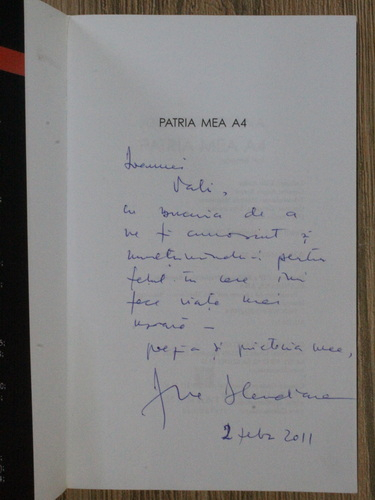 PATRIA MEA A4
Doamnei
Vali,
cu bucuria de a
ne fi cunoscut și
mulțumindu-i pentru
felul în care îmi
face viața mai
ușoară –
poezia și prietenia mea,
Ana Blandiana
2 febr 2011